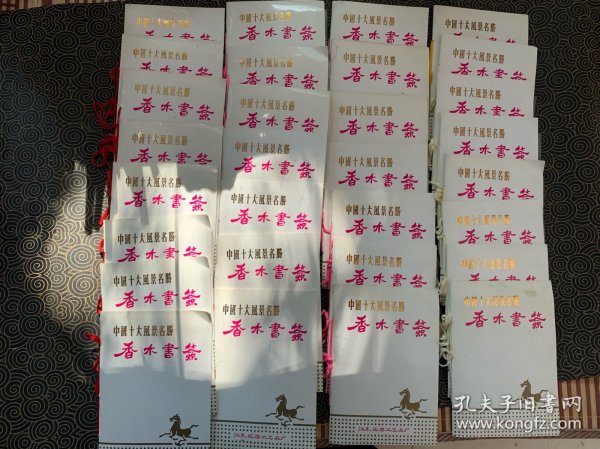 中國十大風景名勝
香木書簽
中國十大風景名勝
香木書簽
中國十大風景名勝
香木書簽
中國十大風景名勝
香木書簽
中國十大風景名勝
香木書簽
中國十大風景名勝
香木書簽
中國十大風景名勝
香木書簽
中國十大風景名勝
香木書簽
中國十大風景名勝
香木書簽
中國十大風景名勝
香木書簽
中國十大風景名勝
香木書簽
中國十大風景名勝
香木書簽
中國十大風景名勝
香木書簽
中國十大風景名勝
香木書簽
中國十大風景名勝
香木書簽
中國十大風景名勝
香木書簽
中國十大風景名勝
香木書簽
中國十大風景名勝
香木書簽
中國十大風景名勝
香木書簽
中國十大風景名勝
香木書簽
中國十大風景名勝
香木書簽
中國十大風景名勝
香木書簽
中國十大風景名勝
香木書簽
中國十大風景名勝
香木書簽
中國十大風景名勝
香木書簽
中國十大風景名勝
香木書簽
中國十大風景名勝
香木書簽
中國十大風景名勝
香木書簽
中國十大風景名勝
香木書簽
中國十大風景名勝
香木書簽
孔夫子旧书网
kongfz.com